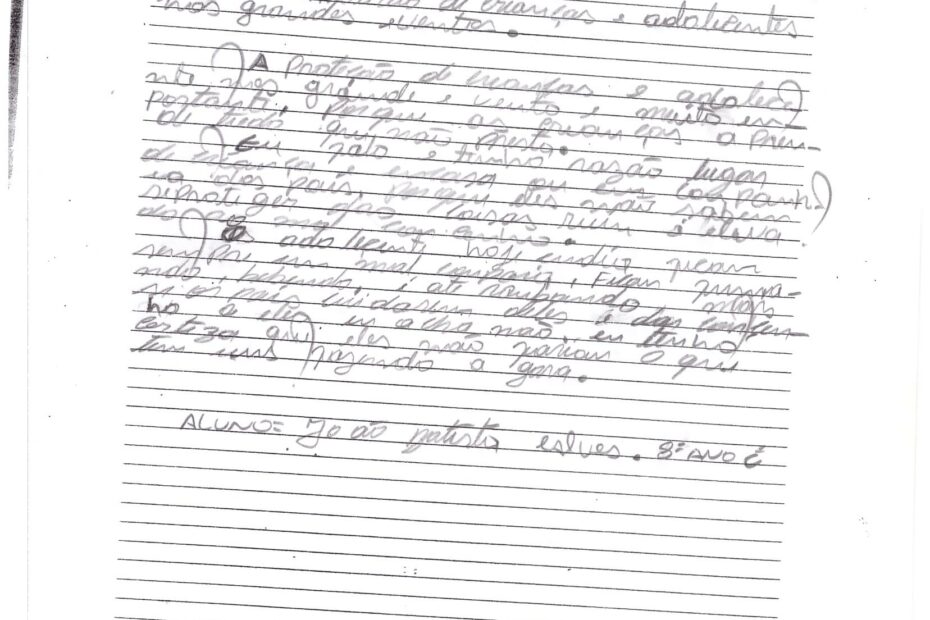 de crianças e adolecentes
nos grandes eventos.
A Proteção de crianças e adolecē
nte nos grande e vento e muito im
portanti, Porque as crianças a pren-
de tudo que não presta.
Eu falo e tinho rasão lugar
de criança e encasa ou em companhi
ia dos pais, porque eles não sabem
siproteger das coisas ruim e leva
do ao mal caminho.
Os adolecenti hoje endia ficam
sempri em mal, Ficam fuma-
ndo, bebendo, i até roubando mais
si os pais cuidasem deles e das
ho a eles eu acho não, eu tinho
certeza qui eles não fariam o qui
tem uns fazendo a gora.
ALUNO= João batista esteves. 8º ANO C